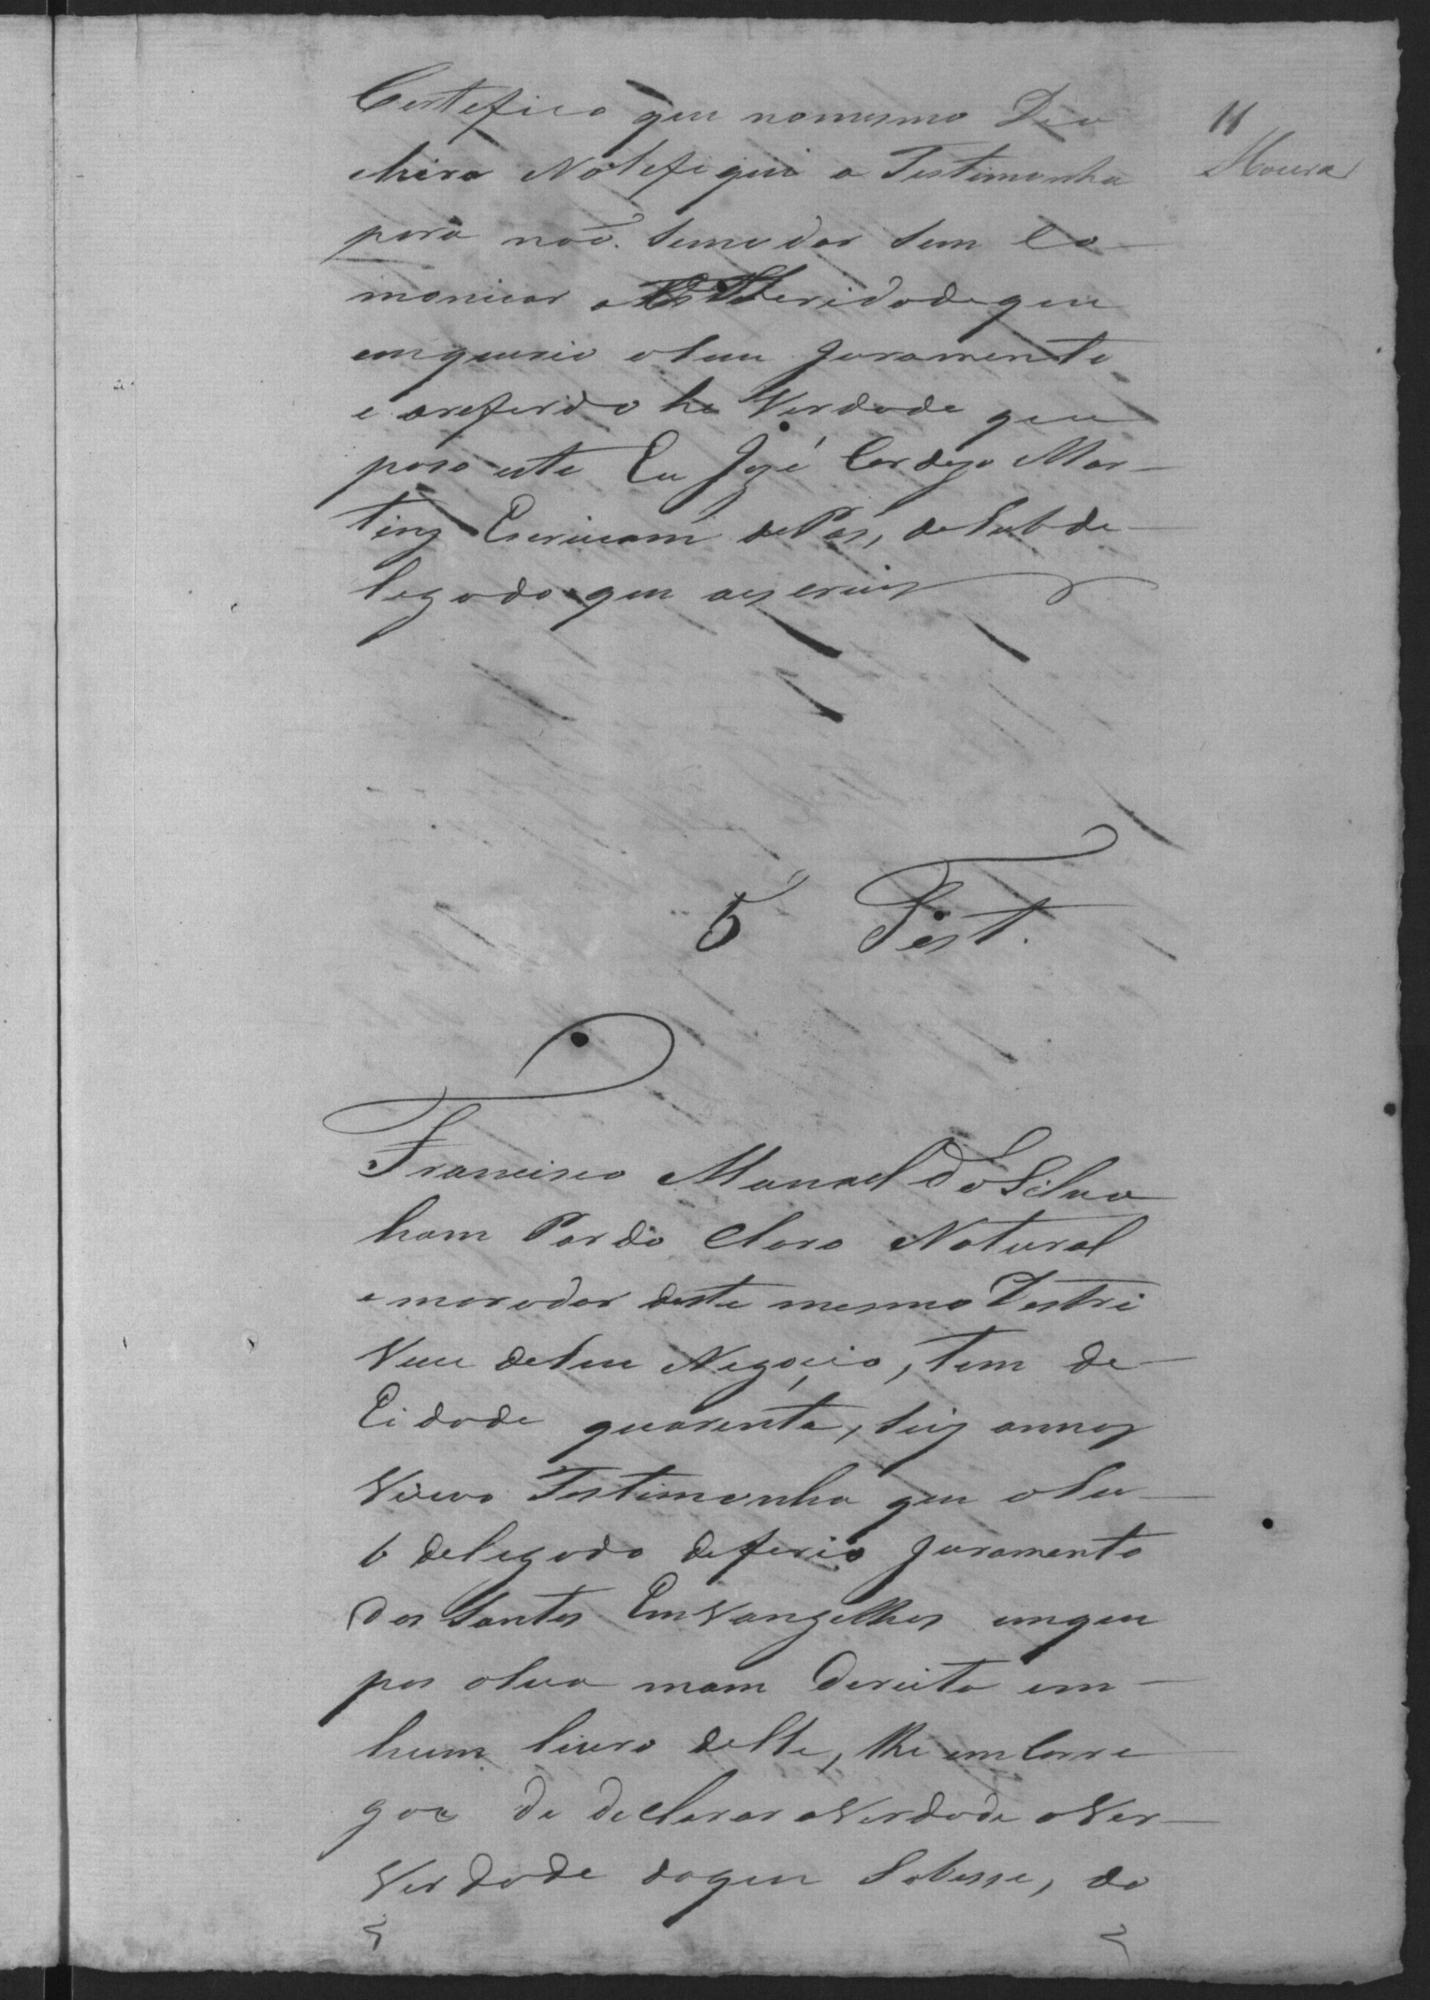 11
Moura
Certefico que nomesmo Dia
e hora Notefiquei a Testimonha
para não semudar sem Co
monicar a Autheridade que
em queirio oseu Juramento
e oreferido he Verdade que
paso este Eu José Cardozo Mar
tinz Escrivam de Paz, de Subde
legado que aescrivy
5ª Test.
Francisco Manoel da Silva
hom Pardo Claro Natural
e morador deste mesmo Destri
Vive deseu Negocio, tem de
Eidade quarenta, seis annos
Viuvo Testimonha que oSu
b delegado deferio Juramento
dos Santos Emvangelhos emque
pos aSua mam Dereita em
hum livro delle, lhe emCarre
gou de declarar aVerdade aVer
Verdade doque Sobesse, do